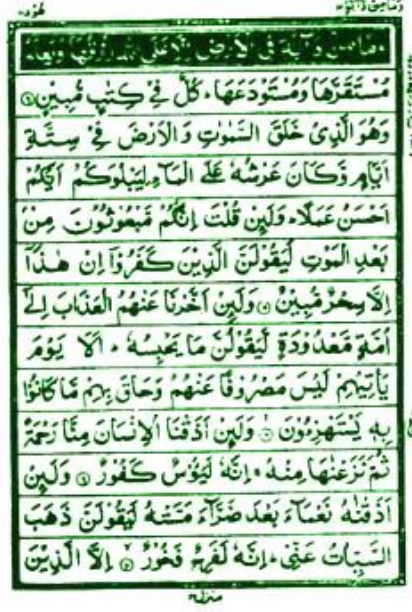 ومامن دآبة ١٢
هود ١١
وَمَا مِنْ دَآبَّةٍ فِى الْاَرْضِ اِلَّا عَلَى اللّٰهِ رِزْقُهَا وَيَعْلَمُ
مُسْتَقَرَّهَا وَمُسْتَوْدَعَهَا ؕ كُلٌّ فِىْ كِتٰبٍ مُّبِيْنٍ ۝۶
وَهُوَ الَّذِىْ خَلَقَ السَّمٰوٰتِ وَالْاَرْضَ فِىْ سِتَّةِ
اَيَّامٍ وَّكَانَ عَرْشُهٗ عَلَى الْمَآءِ لِيَبْلُوَكُمْ اَيُّكُمْ
اَحْسَنُ عَمَلًا ؕ وَلَئِنْ قُلْتَ اِنَّكُمْ مَّبْعُوْثُوْنَ مِنْۢ
بَعْدِ الْمَوْتِ لَيَقُوْلَنَّ الَّذِيْنَ كَفَرُوْٓا اِنْ هٰذَآ
اِلَّا سِحْرٌ مُّبِيْنٌ ۝۷ وَلَئِنْ اَخَّرْنَا عَنْهُمُ الْعَذَابَ اِلٰٓى
اُمَّةٍ مَّعْدُوْدَةٍ لَّيَقُوْلُنَّ مَا يَحْبِسُهٗ ؕ اَلَا يَوْمَ
يَاْتِيْهِمْ لَيْسَ مَصْرُوْفًا عَنْهُمْ وَحَاقَ بِهِمْ مَّا كَانُوْا
بِهٖ يَسْتَهْزِءُوْنَ ۝۸ وَلَئِنْ اَذَقْنَا الْاِنْسَانَ مِنَّا رَحْمَةً
ثُمَّ نَزَعْنٰهَا مِنْهُ ۚ اِنَّهٗ لَيَـُٔوْسٌ كَفُوْرٌ ۝۹ وَلَئِنْ
اَذَقْنٰهُ نَعْمَآءَ بَعْدَ ضَرَّآءَ مَسَّتْهُ لَيَقُوْلَنَّ ذَهَبَ
السَّيِّاٰتُ عَنِّىْ ؕ اِنَّهٗ لَفَرِحٌ فَخُوْرٌ ۝۱۰ اِلَّا الَّذِيْنَ
منزل ٣